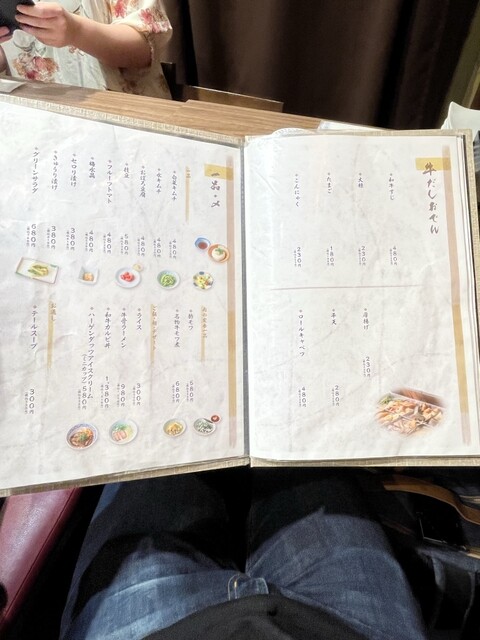 牛だしおでん
和牛すじ
480円
大根
230円
たまご
180円
こんにゃく
230円
厚揚げ
230円
牛天
280円
ロールキャベツ
480円
一品・〆
白菜キムチ
480円
水キムチ
480円
おぼろ豆腐
480円
枝豆
580円
フルーツトマト
480円
梅水晶
480円
セロリ漬け
380円
きゅうり漬け
380円
グリーンサラダ
680円
酢モツ
580円
名物牛モツ煮
680円
ライス
300円
牛骨ラーメン
980円
和牛カルビ丼
1,380円
ハーゲンダッツアイスクリーム
(ミニカップ)
580円
テールスープ
300円